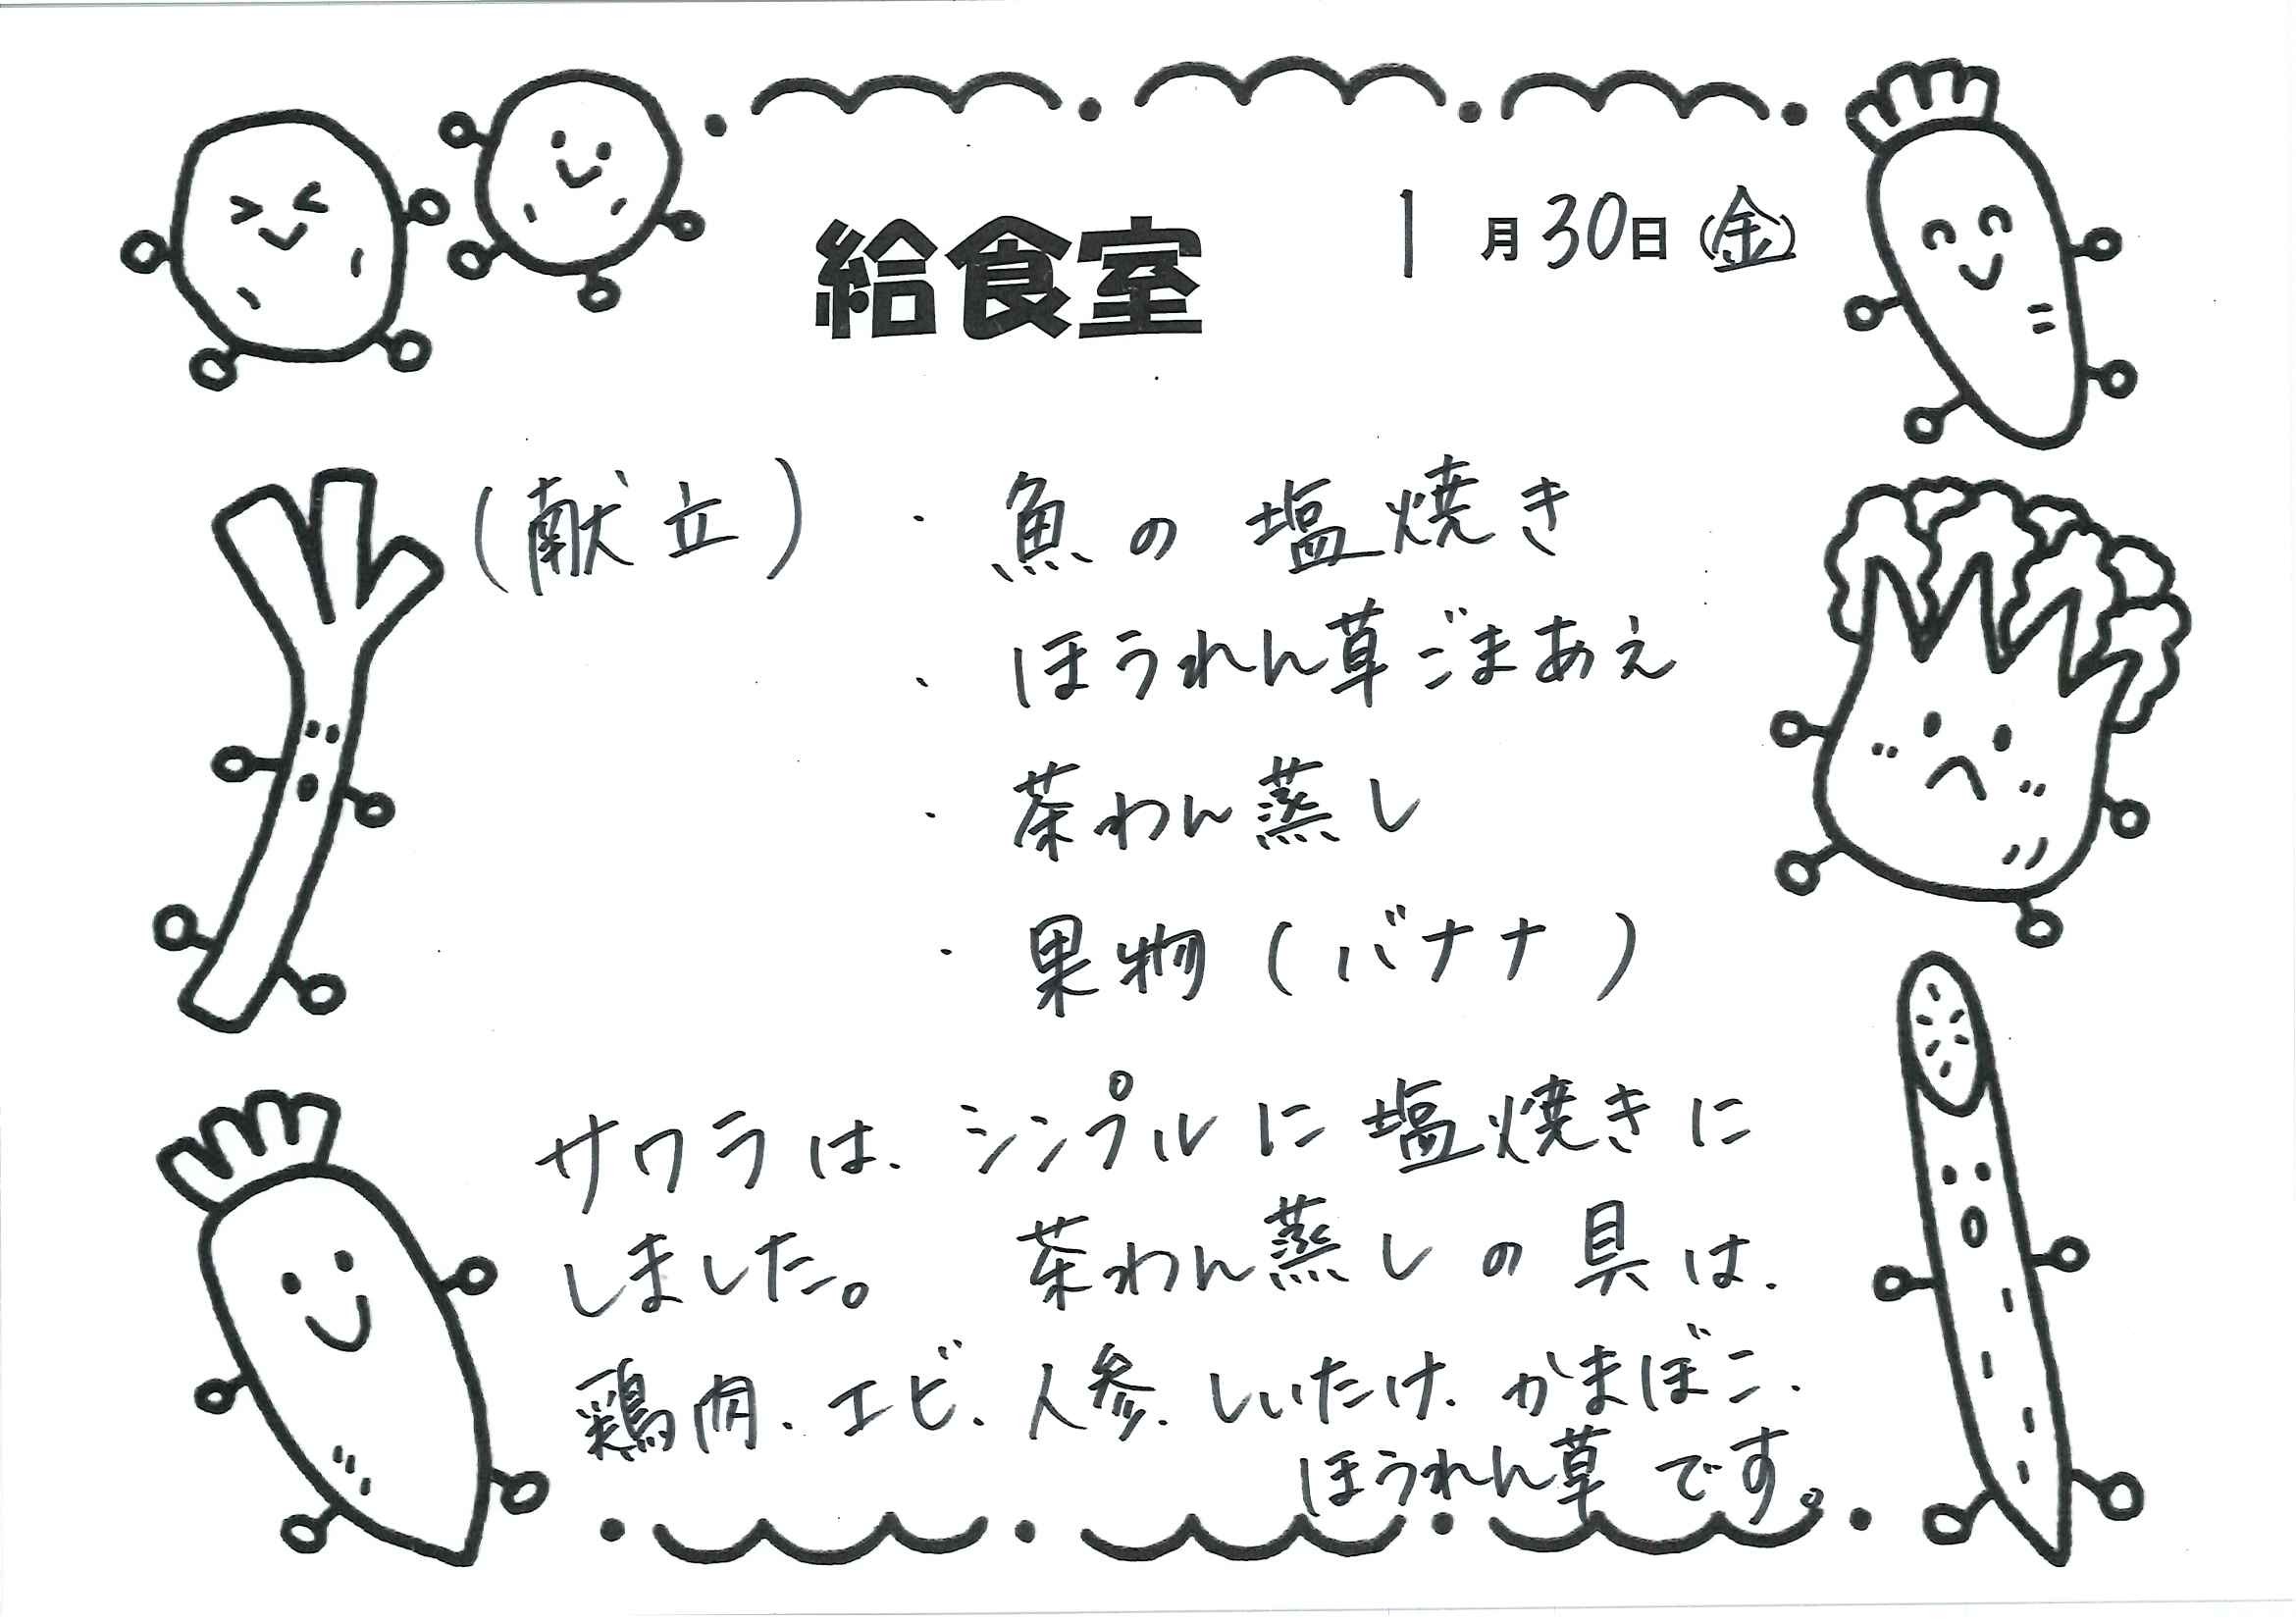 給食室
1月30日(金)
(献立)・魚の塩焼き
・ほうれん草ごまあえ
・茶わん蒸し
・果物(バナナ)
サワラは、シンプルに塩焼きに
しました。茶わん蒸しの具は、
鶏肉、エビ、人参、しいたけ、かまぼこ、
ほうれん草です。